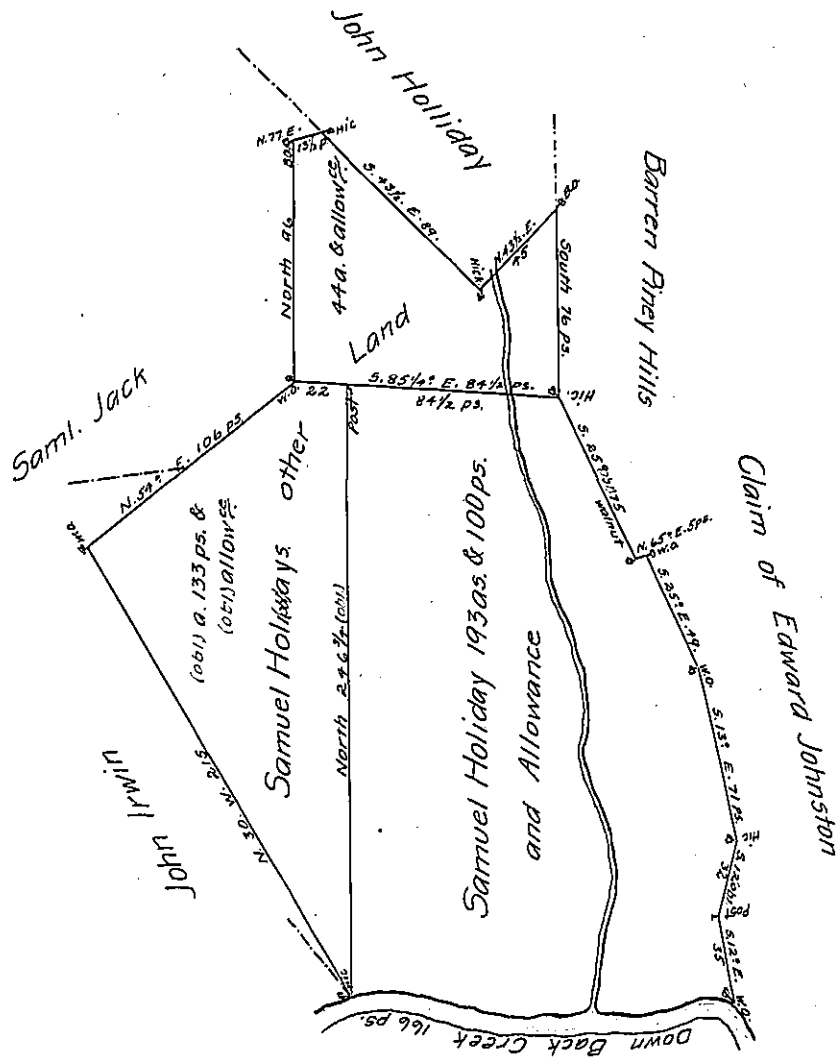 John Holliday
Barren Piney Hills
Claim of Edward Johnston
Saml. Jack
John Irwin
N. 77 E.
13½ p
Hic
B.O.
North 96
44a. & allowce.
S. 43½. E. 89.
Hick
N. 43½. E.
25
B.O.
South 76 ps.
Land
W.O.
22
S. 85¼° E. 84½ ps.
84½ ps.
Post
HIC.
N. 54° E. 106 ps.
W.O.
(obl) a. 133 ps. &
(obl) allowce.
Samuel Holidays other
North 246¾ (obl)
N. 30. W. 215.
Hic
Samuel Holiday 193as. & 100ps.
and Allowance
walnut
N. 65° E. 5ps.
W.O
S. 25° E. 49.
W.O.
S. 13° E. 71 PS.
Hic
32
Post
S. 12° E.
35
W.O.
Down Back Creek 166 ps.